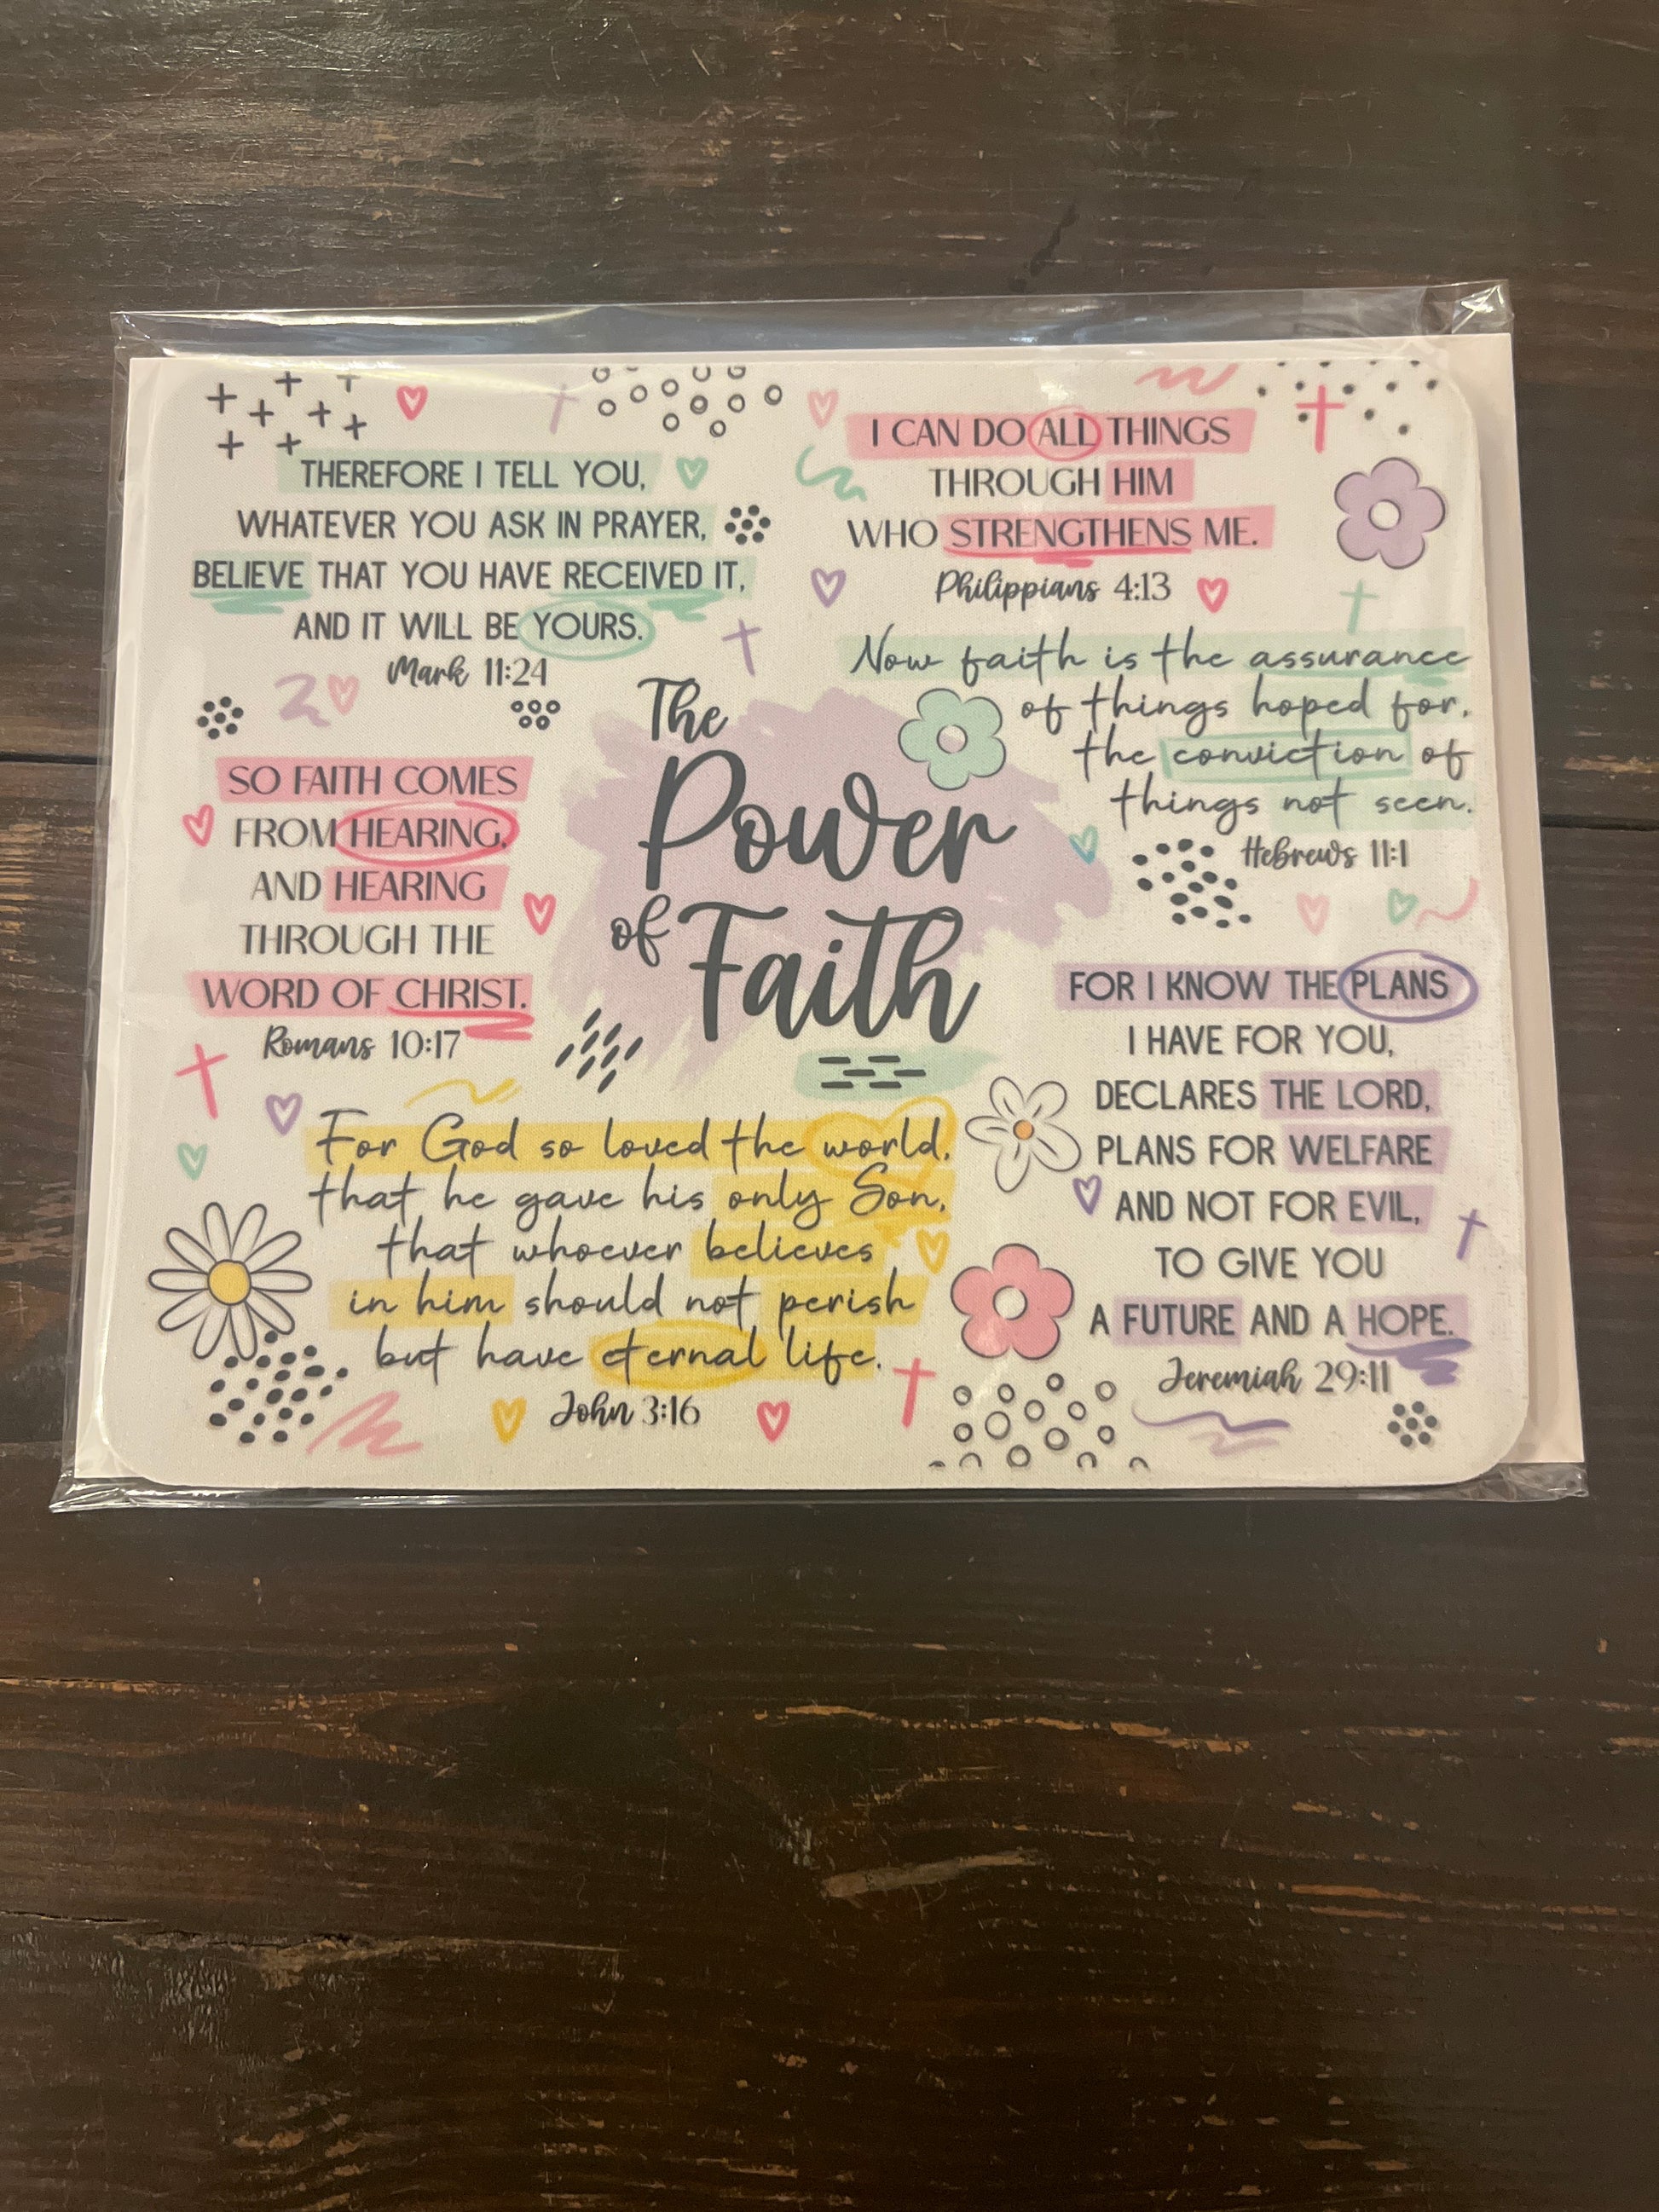 THEREFORE I TELL YOU,
WHATEVER YOU ASK IN PRAYER,
BELIEVE THAT YOU HAVE RECEIVED IT,
AND IT WILL BE YOURS.
Mark 11:24
I CAN DO ALL THINGS
THROUGH HIM
WHO STRENGTHENS ME.
Philippians 4:13
Now faith is the assurance
of things hoped for,
the conviction of
things not seen.
Hebrews 11:1
The
Power
of Faith
SO FAITH COMES
FROM HEARING,
AND HEARING
THROUGH THE
WORD OF CHRIST.
Romans 10:17
For God so loved the world,
that he gave his only Son,
that whoever believes
in him should not perish
but have eternal life.
John 3:16
FOR I KNOW THE PLANS
I HAVE FOR YOU,
DECLARES THE LORD,
PLANS FOR WELFARE
AND NOT FOR EVIL,
TO GIVE YOU
A FUTURE AND A HOPE.
Jeremiah 29:11